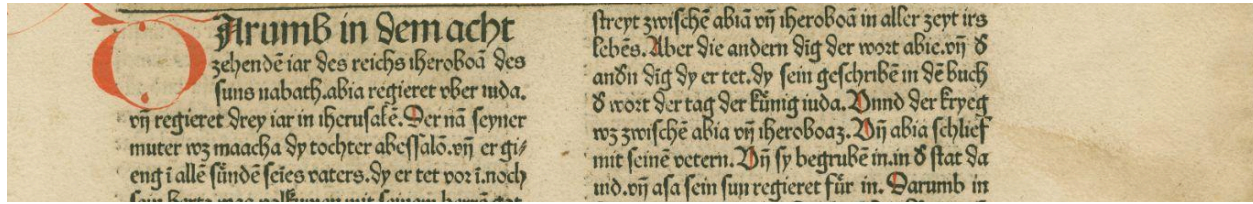 DArumb in dem acht
zehendē iar des reichs iheroboā des
suns nabath.abia regieret vber iuda.
vn̄ regieret drey iar in iherusalē.Der nā seyner
muter wz maacha dy tochter abessalō.vn̄ er gi/
eng ī allē sündē seīes vaters.dy er tet vor ī.noch
sein hertz was volkumen mit seinem herrē got
streyt zwischē abiā vn̄ iheroboā in aller zeyt irs
lebēs.Aber die andern dig der wort abie.vn̄ d̕
and̕n dig dy er tet.dy sein geschribē in dē buch
d̕ wort der tag der künig iuda.Vnnd der kryeg
wz zwischē abia vn̄ iheroboaz.Vn̄ abia schlief
mit seinē vetern.Vn̄ sy begrubē in.in d̕ stat da
uid.vn̄ asa sein sun regieret für in.Darumb in